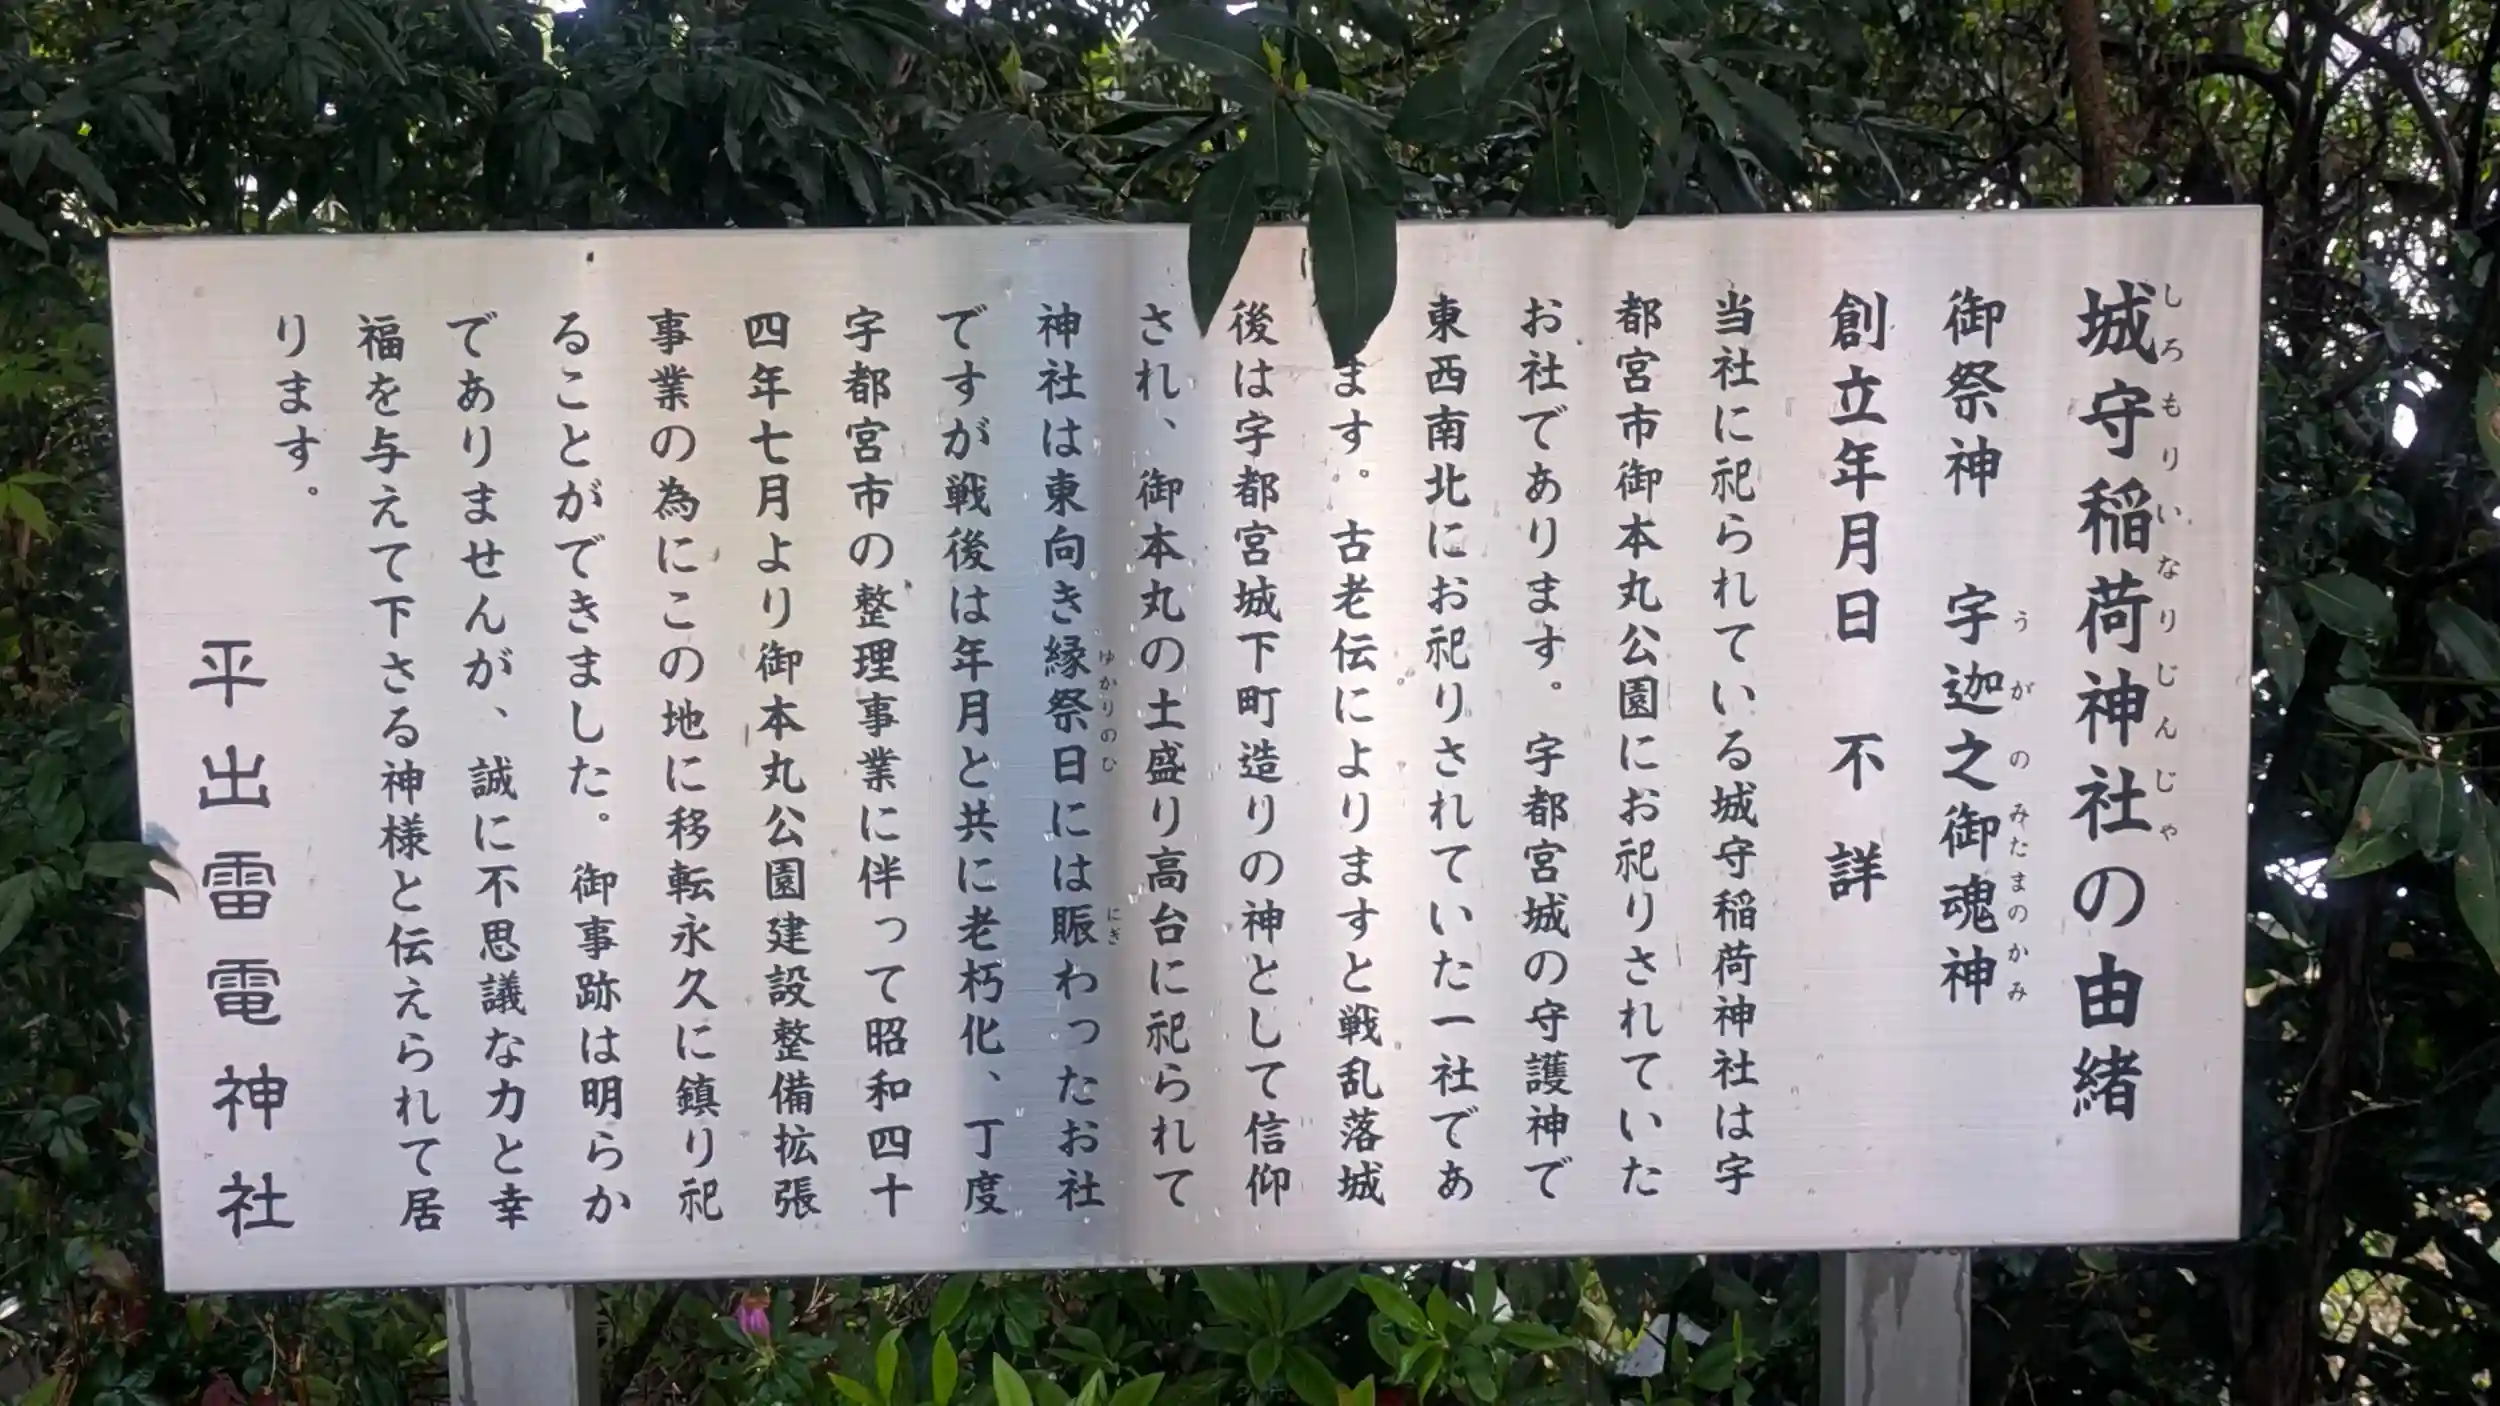 城守稲荷神社の由緒
しろもりいなりじんじゃ
御祭神　宇迦之御魂神
うがのみたまのかみ
創立年月日　不詳
当社に祀られている城守稲荷神社は宇
都宮市御本丸公園にお祀りされていた
お社であります。宇都宮城の守護神で
東西南北にお祀りされていた一社であ
ます。古老伝によりますと戦乱落城
後は宇都宮城下町造りの神として信仰
され、御本丸の土盛り高台に祀られて
神社は東向き縁祭日には賑わったお社
ゆかりのひ
にぎ
ですが戦後は年月と共に老朽化、丁度
宇都宮市の整理事業に伴って昭和四十
四年七月より御本丸公園建設整備拡張
事業の為にこの地に移転永久に鎮り祀
ることができました。御事跡は明らか
でありませんが、誠に不思議な力と幸
福を与えて下さる神様と伝えられて居
ります。
平出雷電神社